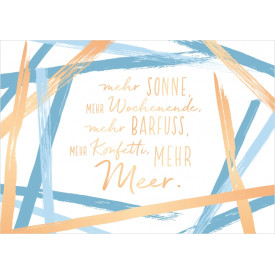 mehr SONNE,
MEHR Wochenende,
mehr BARFUSS,
MEHR Konfetti, MEHR
Meer.